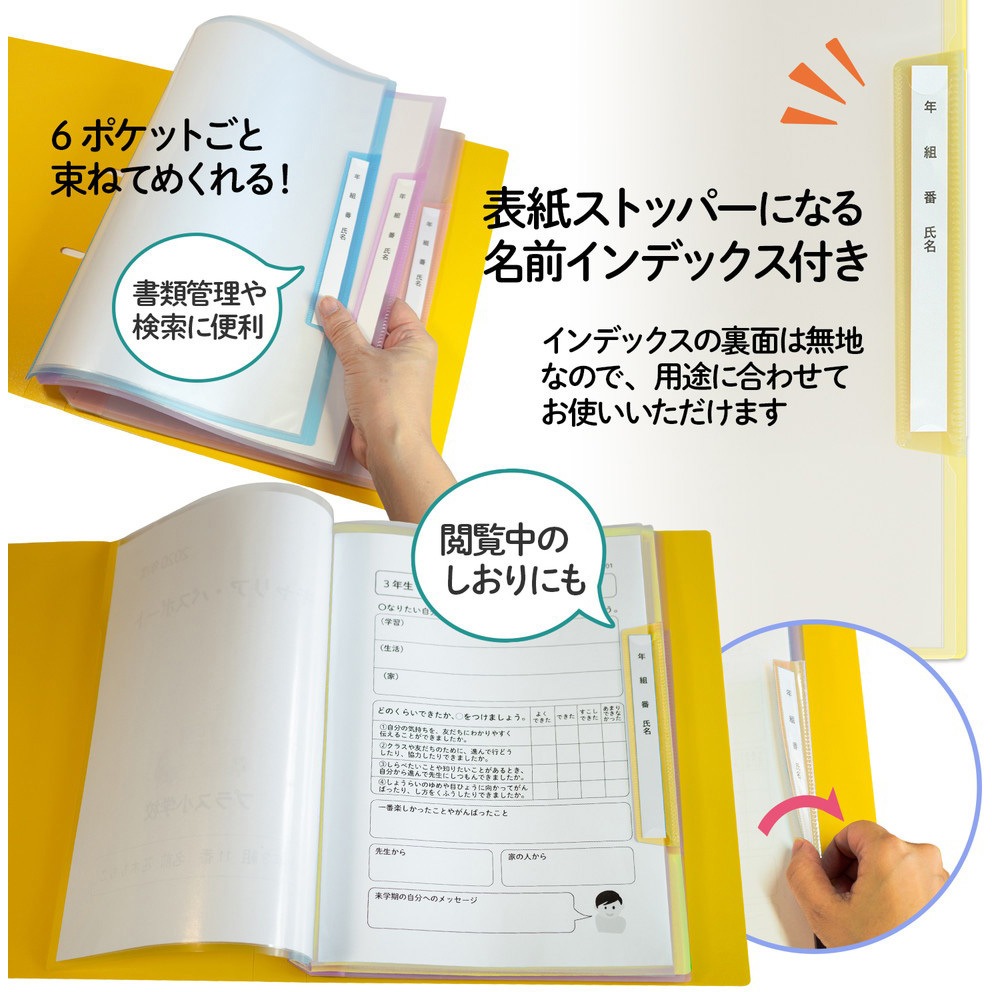 6 ポケットごと
束ねてめくれる！
書類管理や
検索に便利
年 組 番 氏名
年 組 番 氏名
年 組 番 氏名
表紙ストッパーになる
名前インデックス付き
インデックスの裏面は無地
なので、用途に合わせて
お使いいただけます
年 組 番 氏名
閲覧中の
しおりにも
3年生
○なりたい自
(学習)
(生活)
(家)
どのくらいできたか、○をつけましょう。 よくできた できた すこしできた あまりできなかった
①自分の気持ちを、友だちにわかりやすく
伝えることができましたか。
②クラスや友だちのために、進んで行どう
したり、協力したりできましたか。
③しらべたいことや知りたいことがあるとき、
自分から進んで先生にしつもんできましたか。
④しょうらいのゆめや目ひょうに向かってがん
ばったり、し方をくふうしたりできましたか。
一番楽しかったことやがんばったこと
先生から 家の人から
来学期の自分へのメッセージ
年 組 番 氏名
年 組 番 氏名